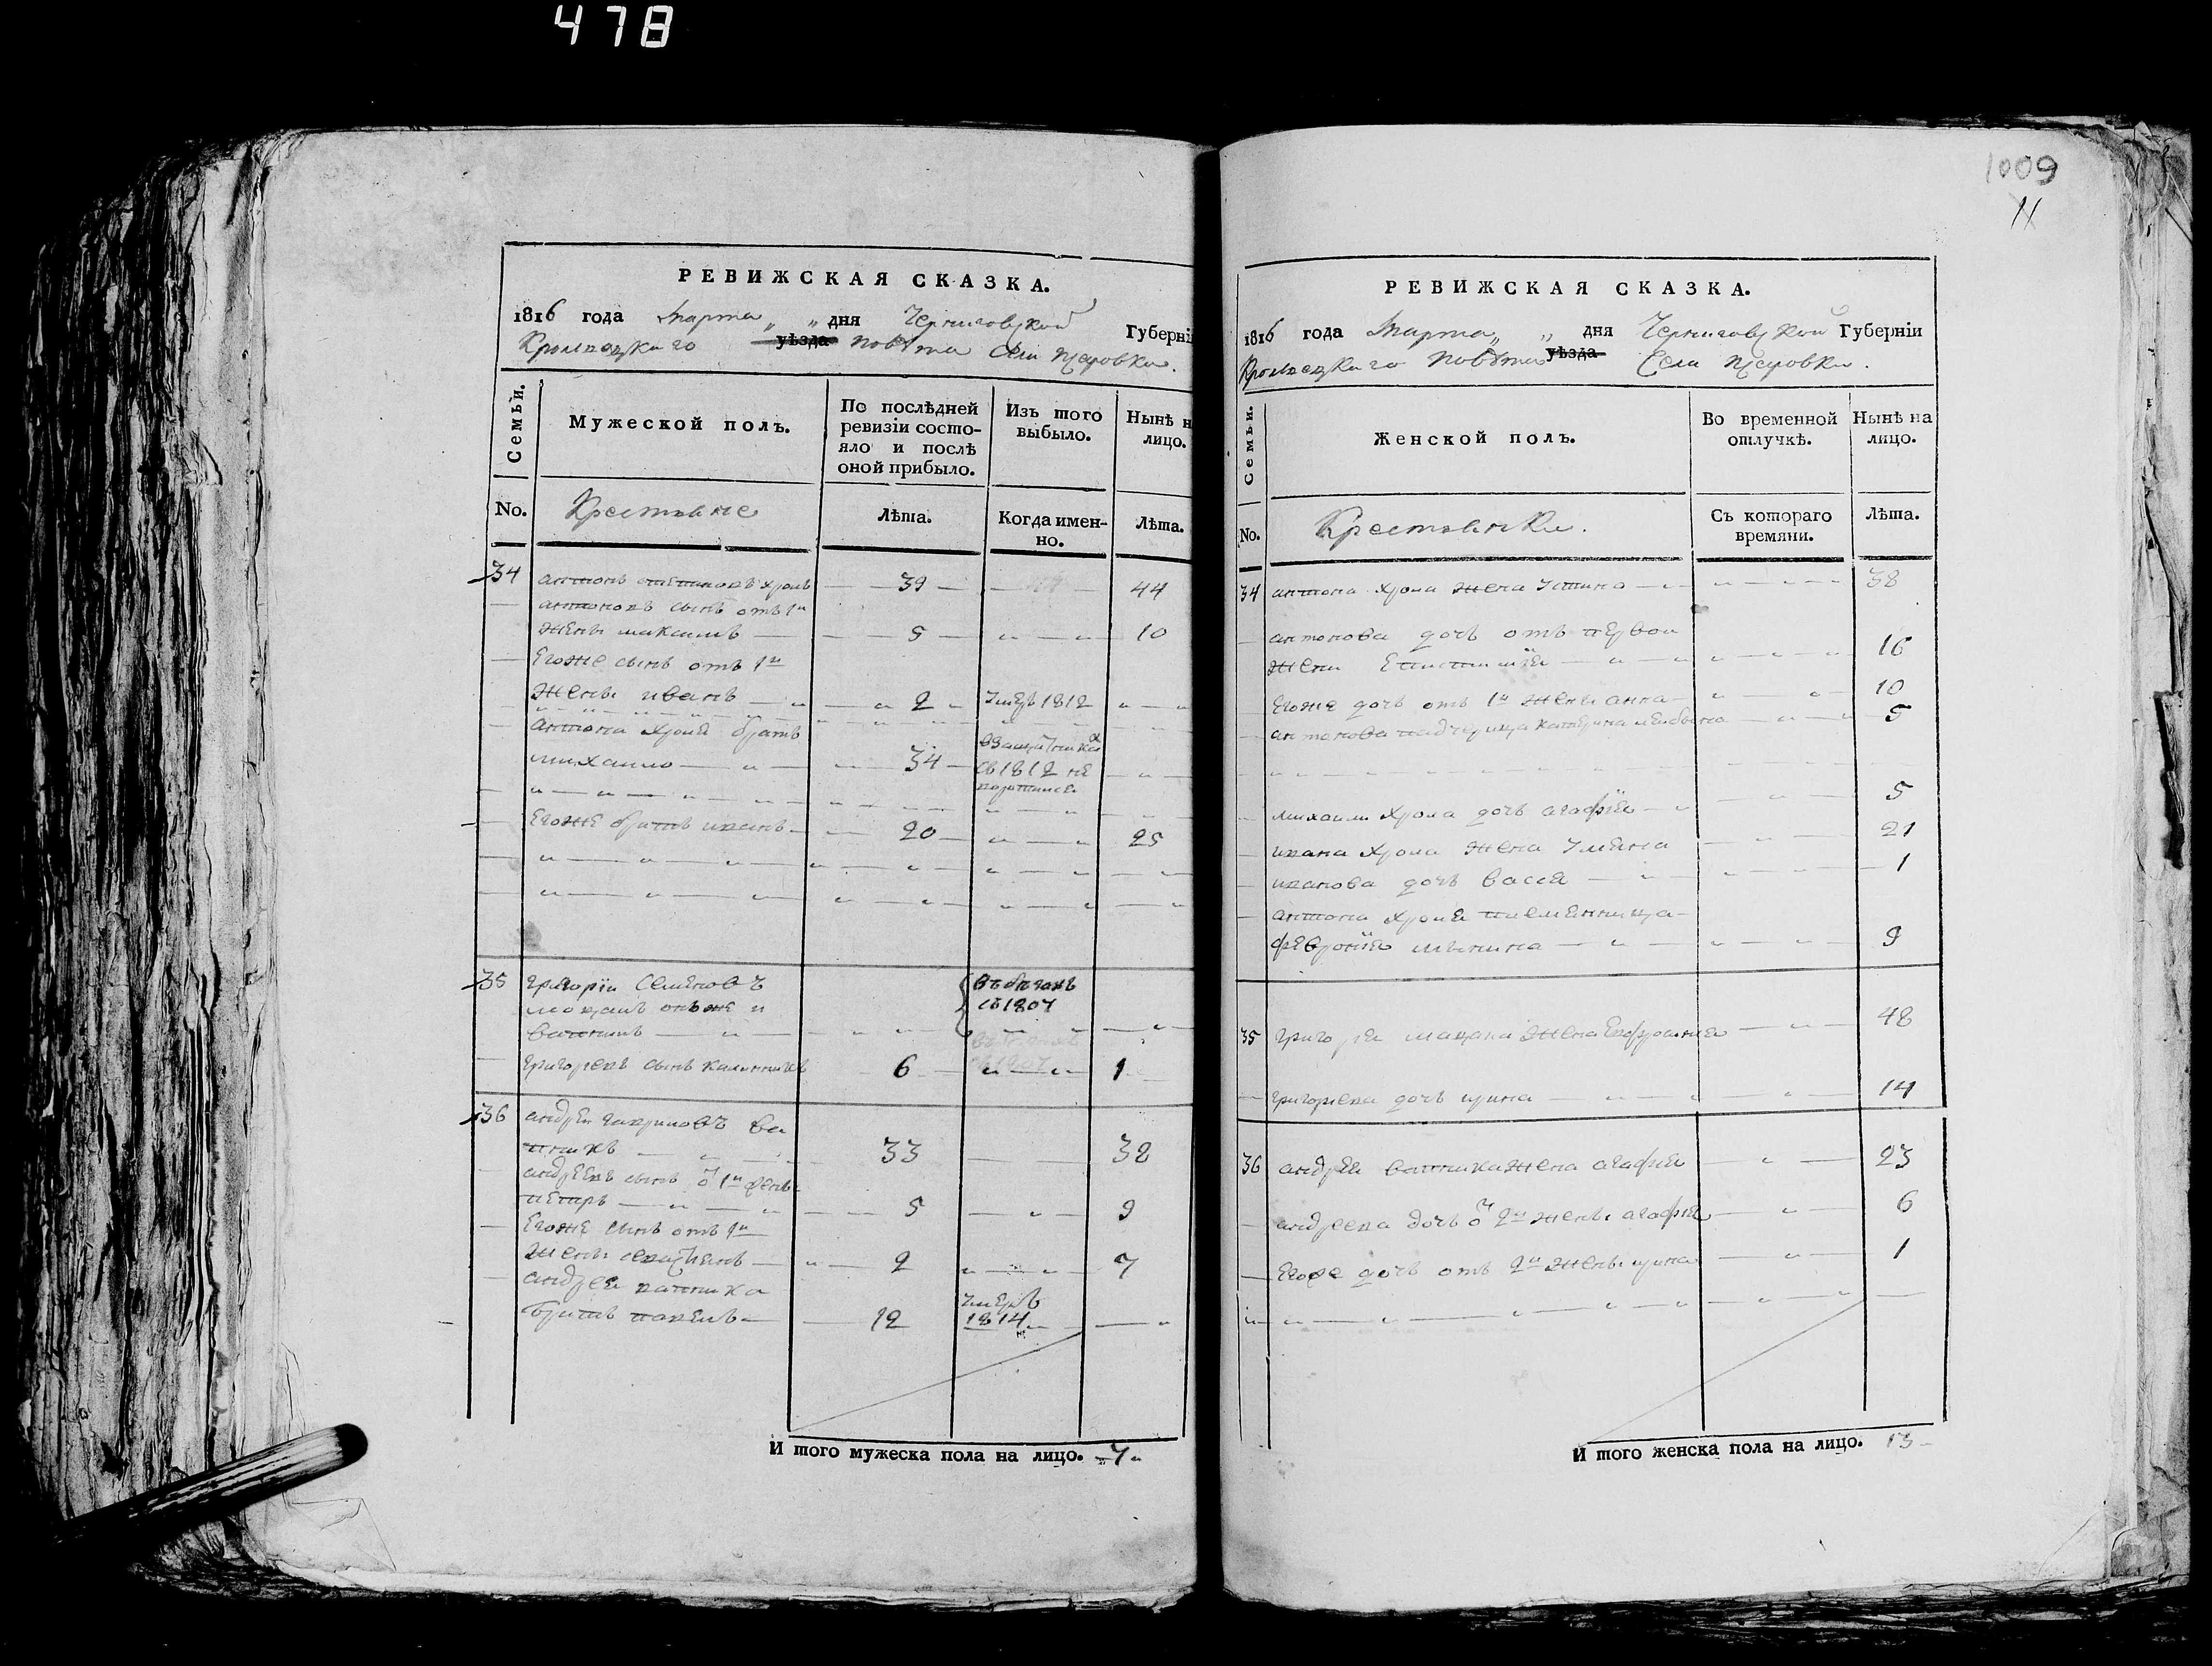 478
РЕВИЖСКАЯ СКАЗКА.
1816 года Марта „ „ дня Черниговской Губерні
Кролевецкого уѣзда повѣта Села
Семьи.
Мужеской полъ.
По послѣдней ревизіи состо-
яло и послѣ
оной прибыло.
Изъ того
выбыло.
Нынѣ н
лицо.
No.
Крестьяне
Лѣта.
Когда имен-
но.
Лѣта.
34 антонъ хромъ 39 44
антоновъ сынъ отъ 1й
жены максимъ 5 10
Егоже сынъ отъ 1й
жены иванъ 2 умеръ 1812
антона хрома братъ
михаило 34 съ 1812 не
Егоже братъ иванъ 20 25
35 григории Семеновъ въ бегахъ
онъ же и съ 1807
григориевъ сынъ 6 1
36 андреи гавриловъ ва
пникъ 33 38
андреевъ сынъ от 1й жены
петръ 5 9
Егоже сынъ отъ 1й
жены 2 7
андрея вапника умеръ
братъ павелъ 12 1814
И того мужеска пола на лицо. 7
1009
11
РЕВИЖСКАЯ СКАЗКА.
1816 года Марта „ „ дня Черниговской Губерніи
Кролевецкого повѣта уѣзда Села
Семьи.
Женской полъ.
Во временной
отлучкѣ.
Нынѣ на
лицо.
No.
Крестьянки.
Съ котораго
времяни.
Лѣта.
34 антона хрома жена устина 38
антонова дочь отъ первои
жени 16
Егоже дочь отъ 1й жены анна 10
антонова падчерица катерина 5
михаила хрома дочь агафия 5
ивана хрома жена уляна 21
иванова дочь васса 1
антона хрома племянница
феврония 9
35 григория жена 48
григориева дочь ирина 14
36 андрея вапника жена агафия 23
андреева дочь от 2й жены агафия 6
Егоже дочь отъ 2й жены ирина 1
И того женска пола на лицо. 13